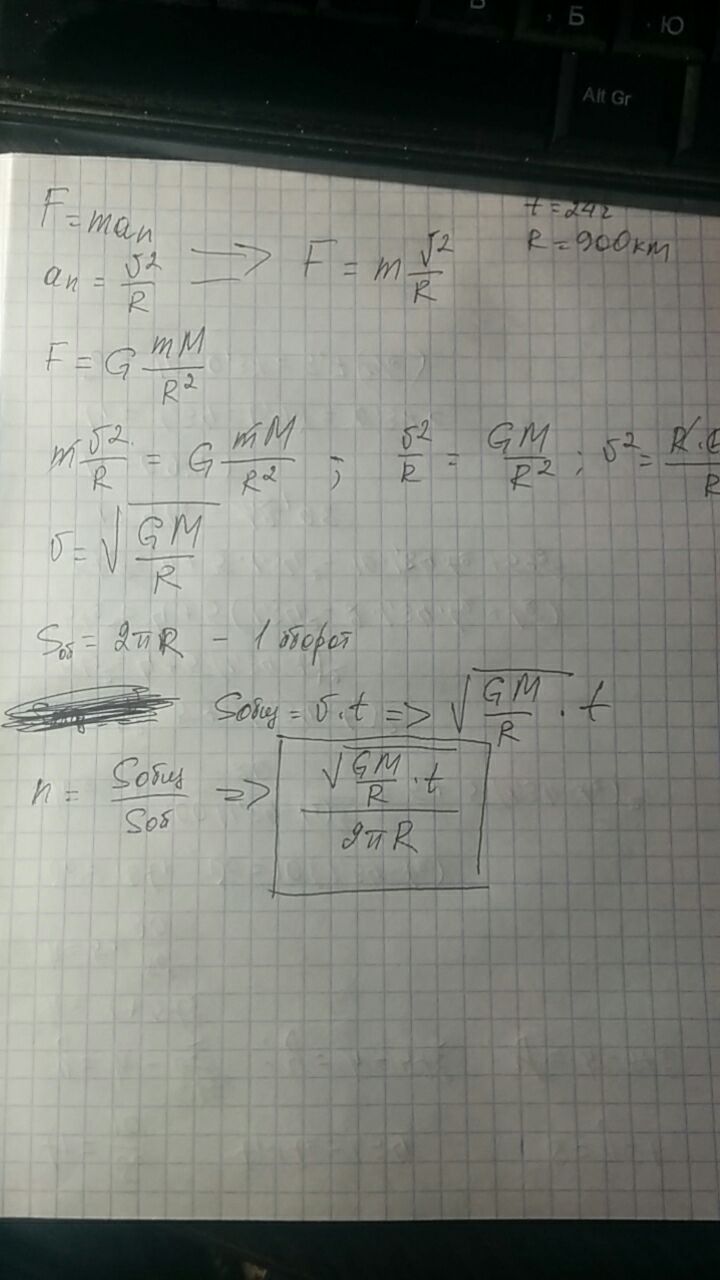 В , Б . Ю
Alt Gr
t = 24ч
R = 900км
F = maₙ
aₙ = υ²/R => F = m υ²/R
F = G mM/R²
m υ²/R = G mM/R² ; υ²/R = GM/R² ; υ² =
υ = √(GM/R)
Sоб = 2πR - 1 оборот
Sобщ = υ·t => √(GM/R) · t
n = Sобщ/Sоб => √(GM/R) · t / 2πR